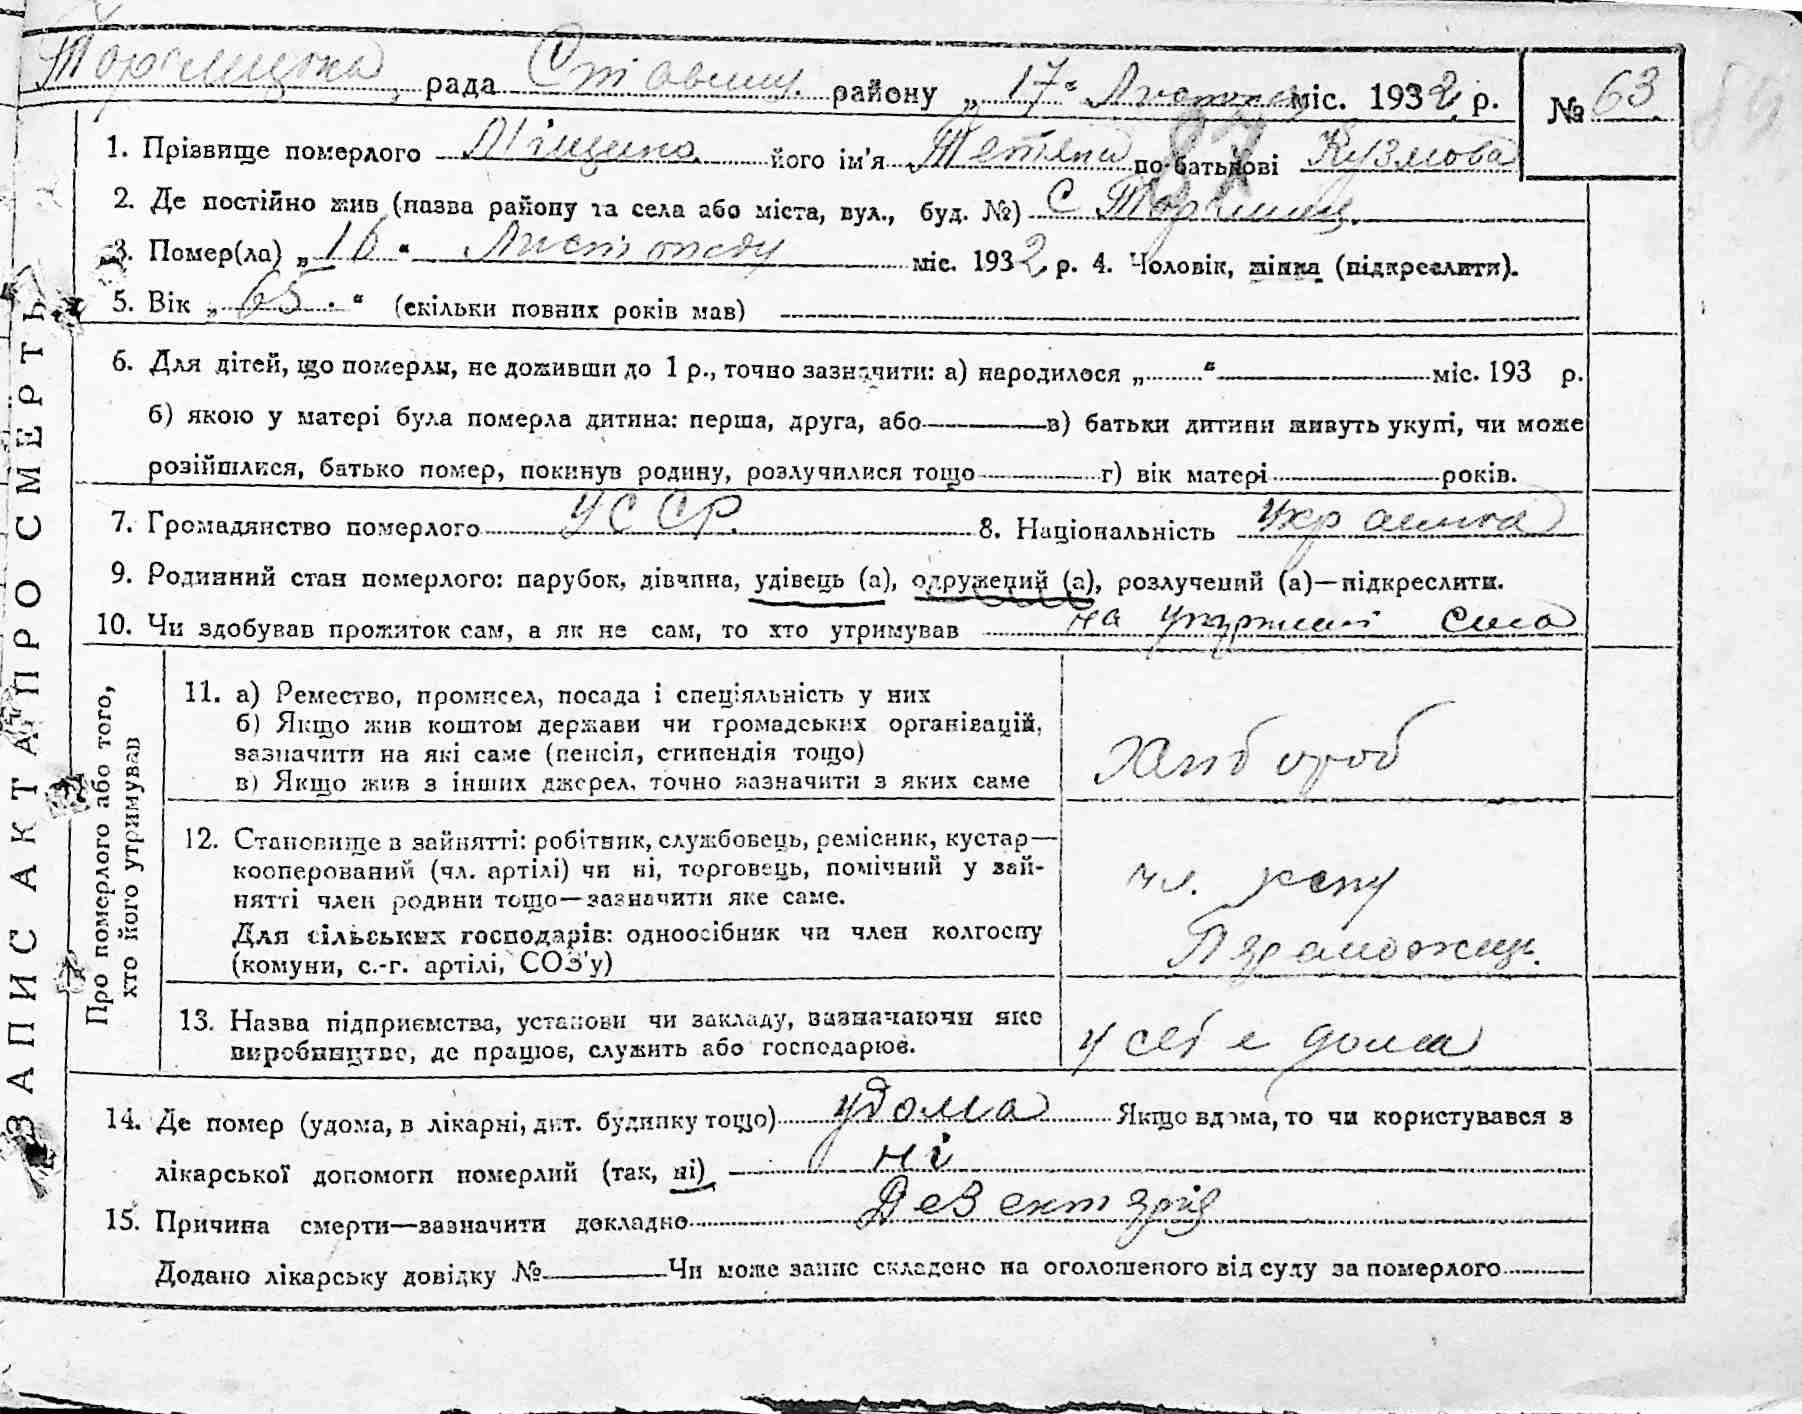 рада Ставищ. району „17“ Листопада міс. 1932 р. № 63
1. Прізвище померлого його ім'я Тетяна по-батькові Кузмова
2. Де постійно жив (назва району та села або міста, вул., буд. №) С
3. Помер(ла) „16“ Листопаду міс. 1932 р. 4. Чоловік, жінка (підкреслити).
5. Вік „65“ (скільки повних років мав)
6. Для дітей, що померли, не доживши до 1 р., точно зазначити: а) народилося „ “ міс. 193 р.
б) якою у матері була померла дитина: перша, друга, або в) батьки дитини живуть укупі, чи може
розійшлися, батько помер, покинув родину, розлучилися тощо г) вік матері років.
7. Громадянство померлого УССР. 8. Національність Українка
9. Родинний стан померлого: парубок, дівчина, удівець (а), одружений (а), розлучений (а)—підкреслити.
10. Чи здобував прожиток сам, а як не сам, то хто утримував на Сина
ЗАПИС АКТА ПРО СМЕРТЬ
Про померлого або того,
хто його утримував
11. а) Ремество, промисел, посада і спеціяльність у них
б) Якщо жив коштом держави чи громадських організацій,
зазначити на які саме (пенсія, стипендія тощо)
в) Якщо жив з інших джерел, точно зазначити з яких саме
Хлібороб
12. Становище в зайнятті: робітник, службовець, ремісник, кустар—
кооперований (чл. артілі) чи ні, торговець, помічний у зай-
нятті член родини тощо—зазначити яке саме.
Для сільських господарів: одноосібник чи член колгоспу
(комуни, с.-г. артілі, СОЗ'у)
чл.
13. Назва підприємства, установи чи закладу, зазначаючи яке
виробництво, де працює, служить або господарює.
у себе дома
14. Де помер (удома, в лікарні, дит. будинку тощо) удома Якщо вдома, то чи користувався з
лікарської допомоги померлий (так, ні) ні
15. Причина смерти—зазначити докладно Дезентэрія
Додано лікарську довідку № Чи може запис складено на оголошеного від суду за померлого